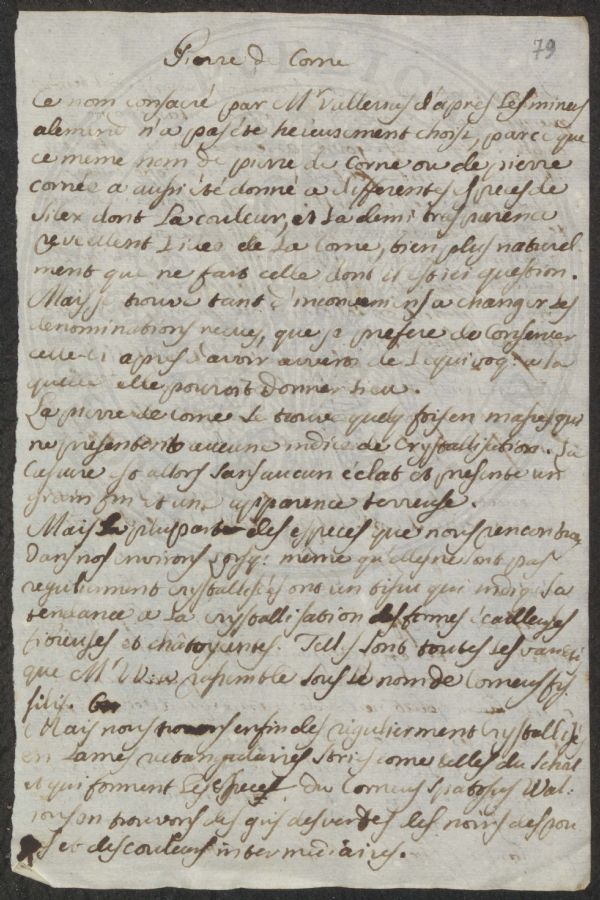 79
Pierre de Corne
Ce nom consacré par Mr Vallerius d'après les mineurs
alemans n'a pas été heureusement choisi, parce que
ce meme nom de pierre de Corne ou de pierre
cornée a aussi été donné a differentes especes de
silex dont la couleur, et la demi trasparence
reveillent l'idée de la Corne, bien plus naturel-
ment que ne fait celle dont il est ici question.
Mais je trouve tant d'inconveniens a changer les
denominations recues, que je prefere de Conserver
celle ci apres d'avoir averti de l'equivoq: a la
quelle elle pouroit donner lieu.
La pierre de corne se trouve quelq fois en masses qui
ne presentent aucune indice de Crystallisation. Sa
Cassure est allors sans aucun éclat et presente un
grain fin et une apparence terreuse.
Mais la plus part des especes que nous rencontrons
dans nos environs lorsq: même qu'elles ne sont pas
regulierment crystallisées ont un tissu qui indiq: sa
tendance a la crystallisation des formes écailleuses
fibreuses et châtoyantes. Telles sont toutes les varieté
que Mr Wall. rassemble sous le nom de Corneus fis
silis.
Mais nous trouvons enfin des regulierment Crystallisés
en lames rectangulaires striés come celles du Schol
et qui forment les Especes du Corneus spatosus Wal-
on trouvons des gris des verdes des noirs des rou
s et des couleurs intermediaires.